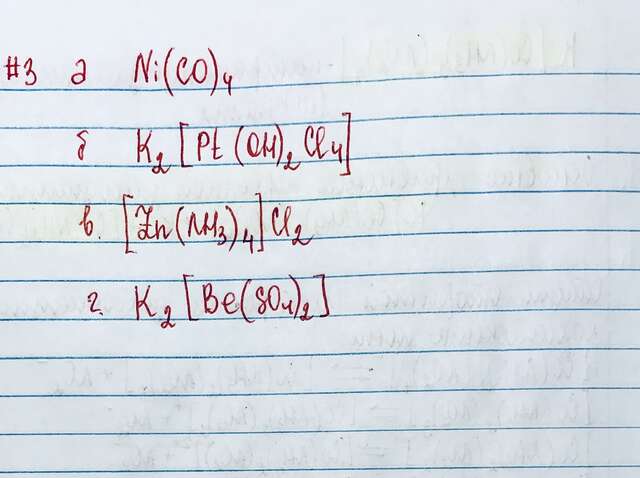 #3 а Ni(CO)₄
б K₂[Pt(OH)₂Cl₄]
в. [Zn(NH₃)₄]Cl₂
г. K₂[Be(SO₄)₂]